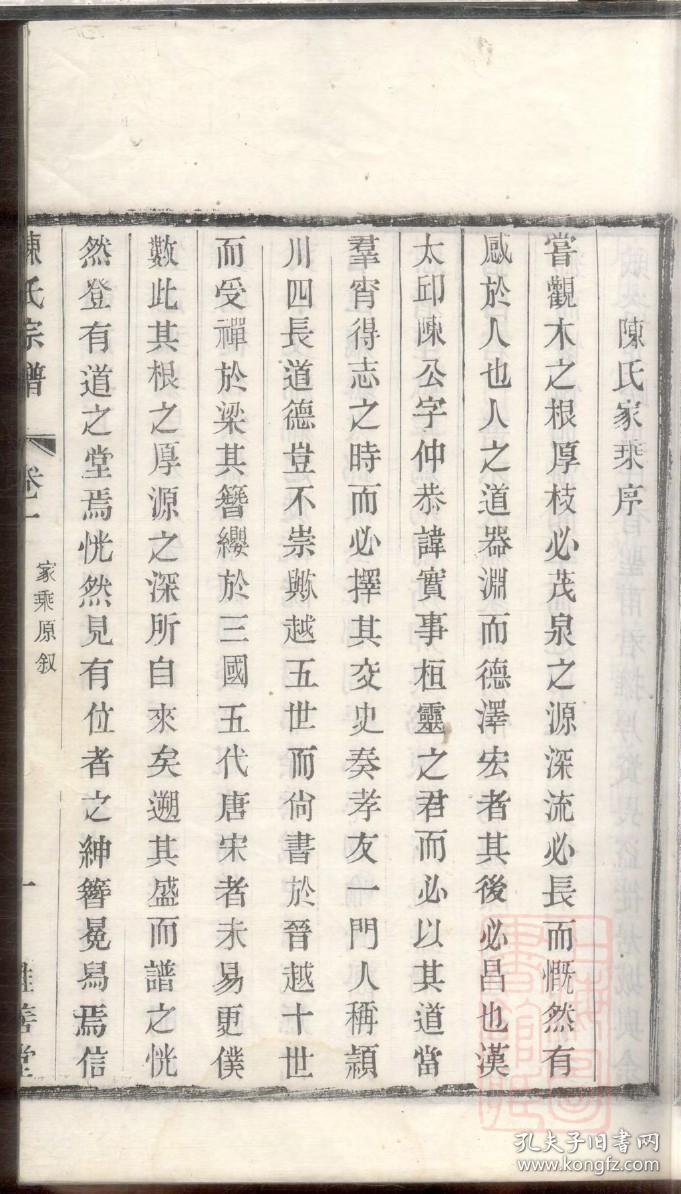 陳氏家乘序
嘗觀木之根厚枝必茂泉之源深流必長而慨然有
感於人也人之道器淵而德澤宏者其後必昌也漢
太邱陳公字仲恭諱寔事桓靈之君而必以其道當
羣宵得志之時而必擇其交史奏孝友一門人稱潁
川四長道德豈不崇歟越五世而尙書於晉越十世
而受禪於梁其簪纓於三國五代唐宋者未易更僕
數此其根之厚源之深所自來矣遡其盛而譜之恍
然登有道之堂焉恍然見有位者之紳簪冕舄焉信
陳氏宗譜 卷一 家乘原叙 一
孔夫子旧书网
www.kongfz.com